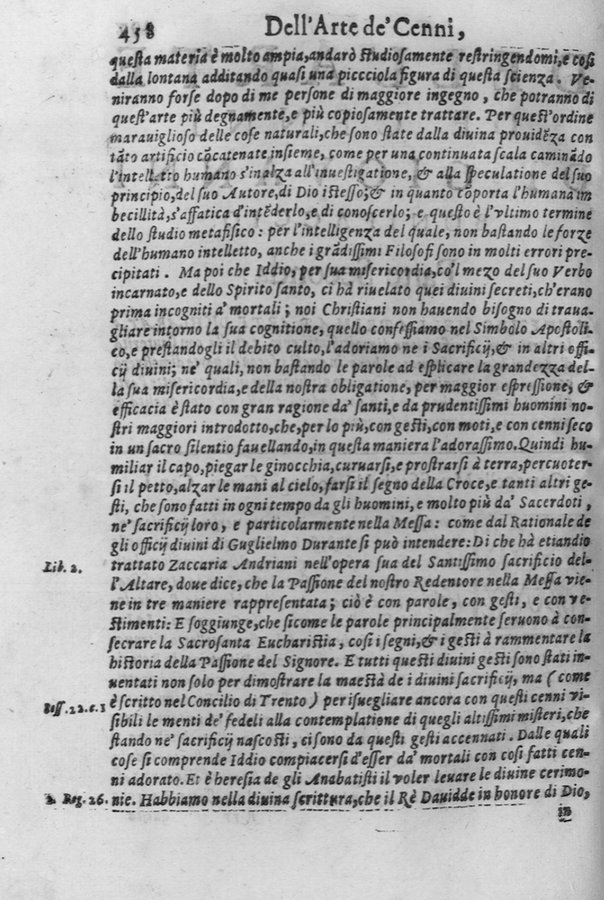 458 Dell'Arte de' Cenni,
questa materia è molto ampia, andarò studiosamente restringendomi, e così
dalla lontana additando quasi una piccciola figura di questa scienza. Ve-
niranno forse dopo di me persone di maggiore ingegno, che potranno di
quest'arte più degnamente, e più copiosamente trattare. Per quest'ordine
marauiglioso delle cose naturali, che sono state dalla diuina prouidēza con
tāto artificio cōcatenate insieme, come per una continuata scala caminādo
l'intelletto humano s'inalza all'inuestigatione, & alla speculatione del suo
principio, del suo Autore, di Dio istesso; & in quanto cōporta l'humana im
becillità, s'affatica d'intēderlo, e di conoscerlo; e questo è l'vltimo termine
dello studio metafisico: per l'intelligenza del quale, non bastando le forze
dell'humano intelletto, anche i grādissimi Filosofi sono in molti errori pre-
cipitati. Ma poi che Iddio, per sua misericordia, co'l mezo del suo Verbo
incarnato, e dello Spirito santo, ci hà riuelato quei diuini secreti, ch'erano
prima incogniti a' mortali; noi Christiani non hauendo bisogno di traua-
gliare intorno la sua cognitione, quello confessiamo nel Simbolo Apostoli-
co, e prestandogli il debito culto, l'adoriamo ne i Sacrificij, & in altri offi-
cij diuini; ne' quali, non bastando le parole ad esplicare la grandezza del-
la sua misericordia, e della nostra obligatione, per maggior espressione, &
efficacia è stato con gran ragione da' santi, e da prudentissimi huomini no-
stri maggiori introdotto, che, per lo più, con gesti, con moti, e con cenni seco
in un sacro silentio fauellando, in questa maniera l'adorassimo. Quindi hu-
miliar il capo, piegar le ginocchia, curuarsi, e prostrarsi à terra, percuoter-
si il petto, alzar le mani al cielo, farsi il segno della Croce, e tanti altri ge-
sti, che sono fatti in ogni tempo da gli huomini, e molto più da' Sacerdoti,
ne' sacrificij loro, e particolarmente nella Messa: come dal Rationale de
gli officij diuini di Guglielmo Durante si può intendere: Di che hà etiandio
Lib. 2. trattato Zaccaria Andriani nell'opera sua del Santissimo sacrificio del-
l'Altare, doue dice, che la Passione del nostro Redentore nella Messa vie-
ne in tre maniere rappresentata; ciò è con parole, con gesti, e con ve-
stimenti: E soggiunge, che sicome le parole principalmente seruono à con-
secrare la Sacrosanta Eucharistia, così i segni, & i gesti à rammentare la
historia della Passione del Signore. E tutti questi diuini gesti sono stati in-
uentati non solo per dimostrare la maestà de i diuini sacrificij, ma (come
Sess. 22. c. 5 è scritto nel Concilio di Trento) per isuegliare ancora con questi cenni vi-
sibili le menti de' fedeli alla contemplatione di quegli altissimi misteri, che
stando ne' sacrificij nascosti, ci sono da questi gesti accennati. Dalle quali
cose si comprende Iddio compiacersi d'esser da' mortali con così fatti cen-
ni adorato. Et è heresia de gli Anabatisti il voler leuare le diuine cerimo-
2. Reg. 26. nie. Habbiamo nella diuina scrittura, che il Rè Dauidde in honore di Dio,
in